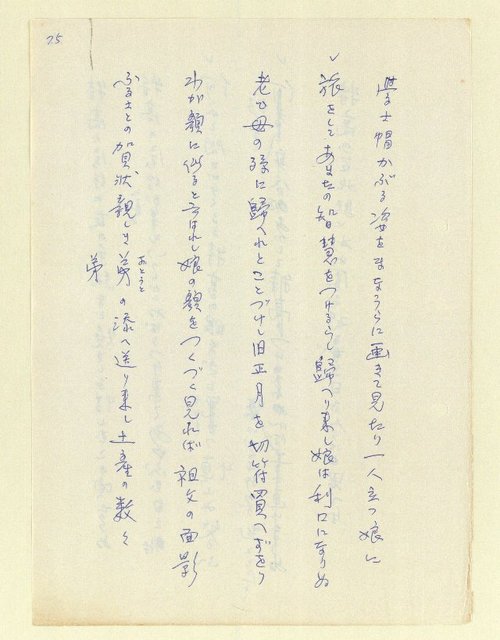 25
学士帽かぶる姿をまなうらに画きて見たり一人立つ娘に
旅をしてあまたの智慧をつけるらし歸へり来し娘は利口になりぬ
老ひ母の孫に歸へれとことづけし旧正月を切符買へずをり
わが顔に似ると云はれし娘の顔をつくづく見れば祖父の面影
ふるさとの賀状親しき弟の添へ送り来し土産の数々
おとうと
弟